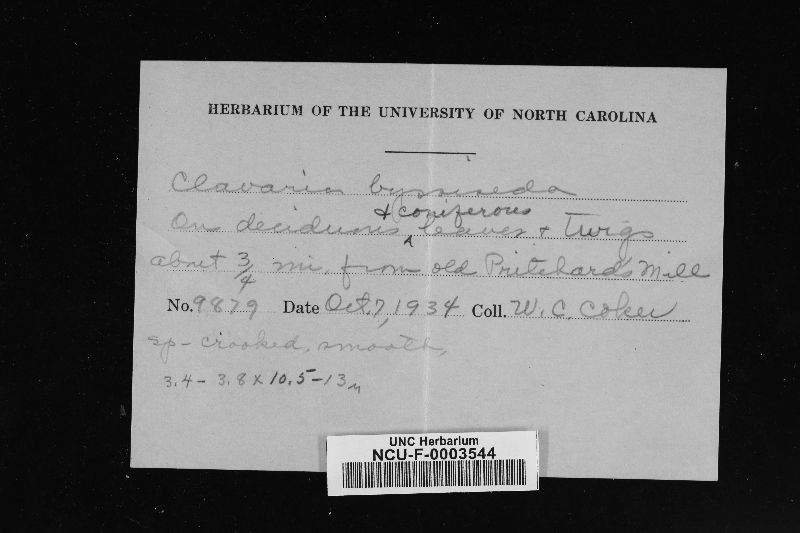 HERBARIUM OF THE UNIVERSITY OF NORTH CAROLINA
Clavaria byssiseda
& coniferous
On deciduous ^ leaves & Twigs
about 3/4 mi. from old Pritchards Mill
No. 9879 Date Oct. 7, 1934 Coll. W. C. Coker
sp - crooked, smooth,
3.4 - 3.8 x 10.5 - 13 μ
UNC Herbarium
NCU-F-0003544